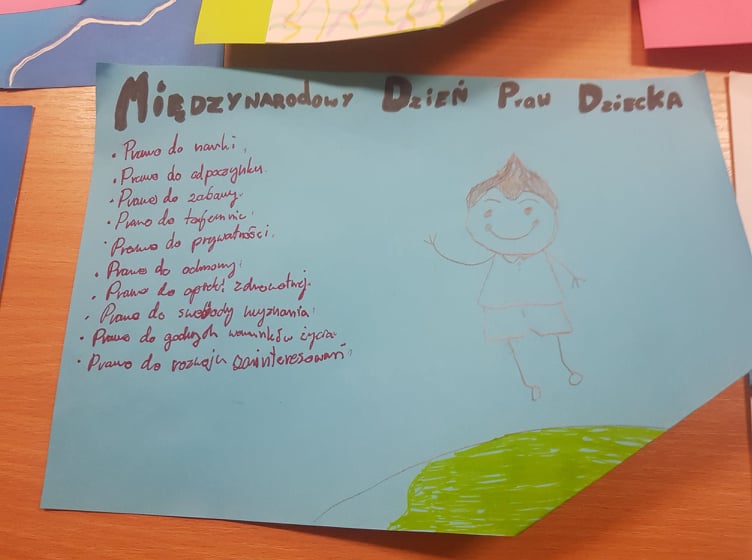 Międzynarodowy Dzień Praw Dziecka
• Prawo do nauki,
• Prawo do odpoczynku.
• Prawo do zabawy.
• Prawo do tajemnic,
• Prawo do prywatności.
• Prawo do odmowy,
• Prawo do opieki zdrowotnej.
• Prawo do swobody wyznania,
• Prawo do godnych warunków życia.
• Prawo do rozwoju zainteresowań,